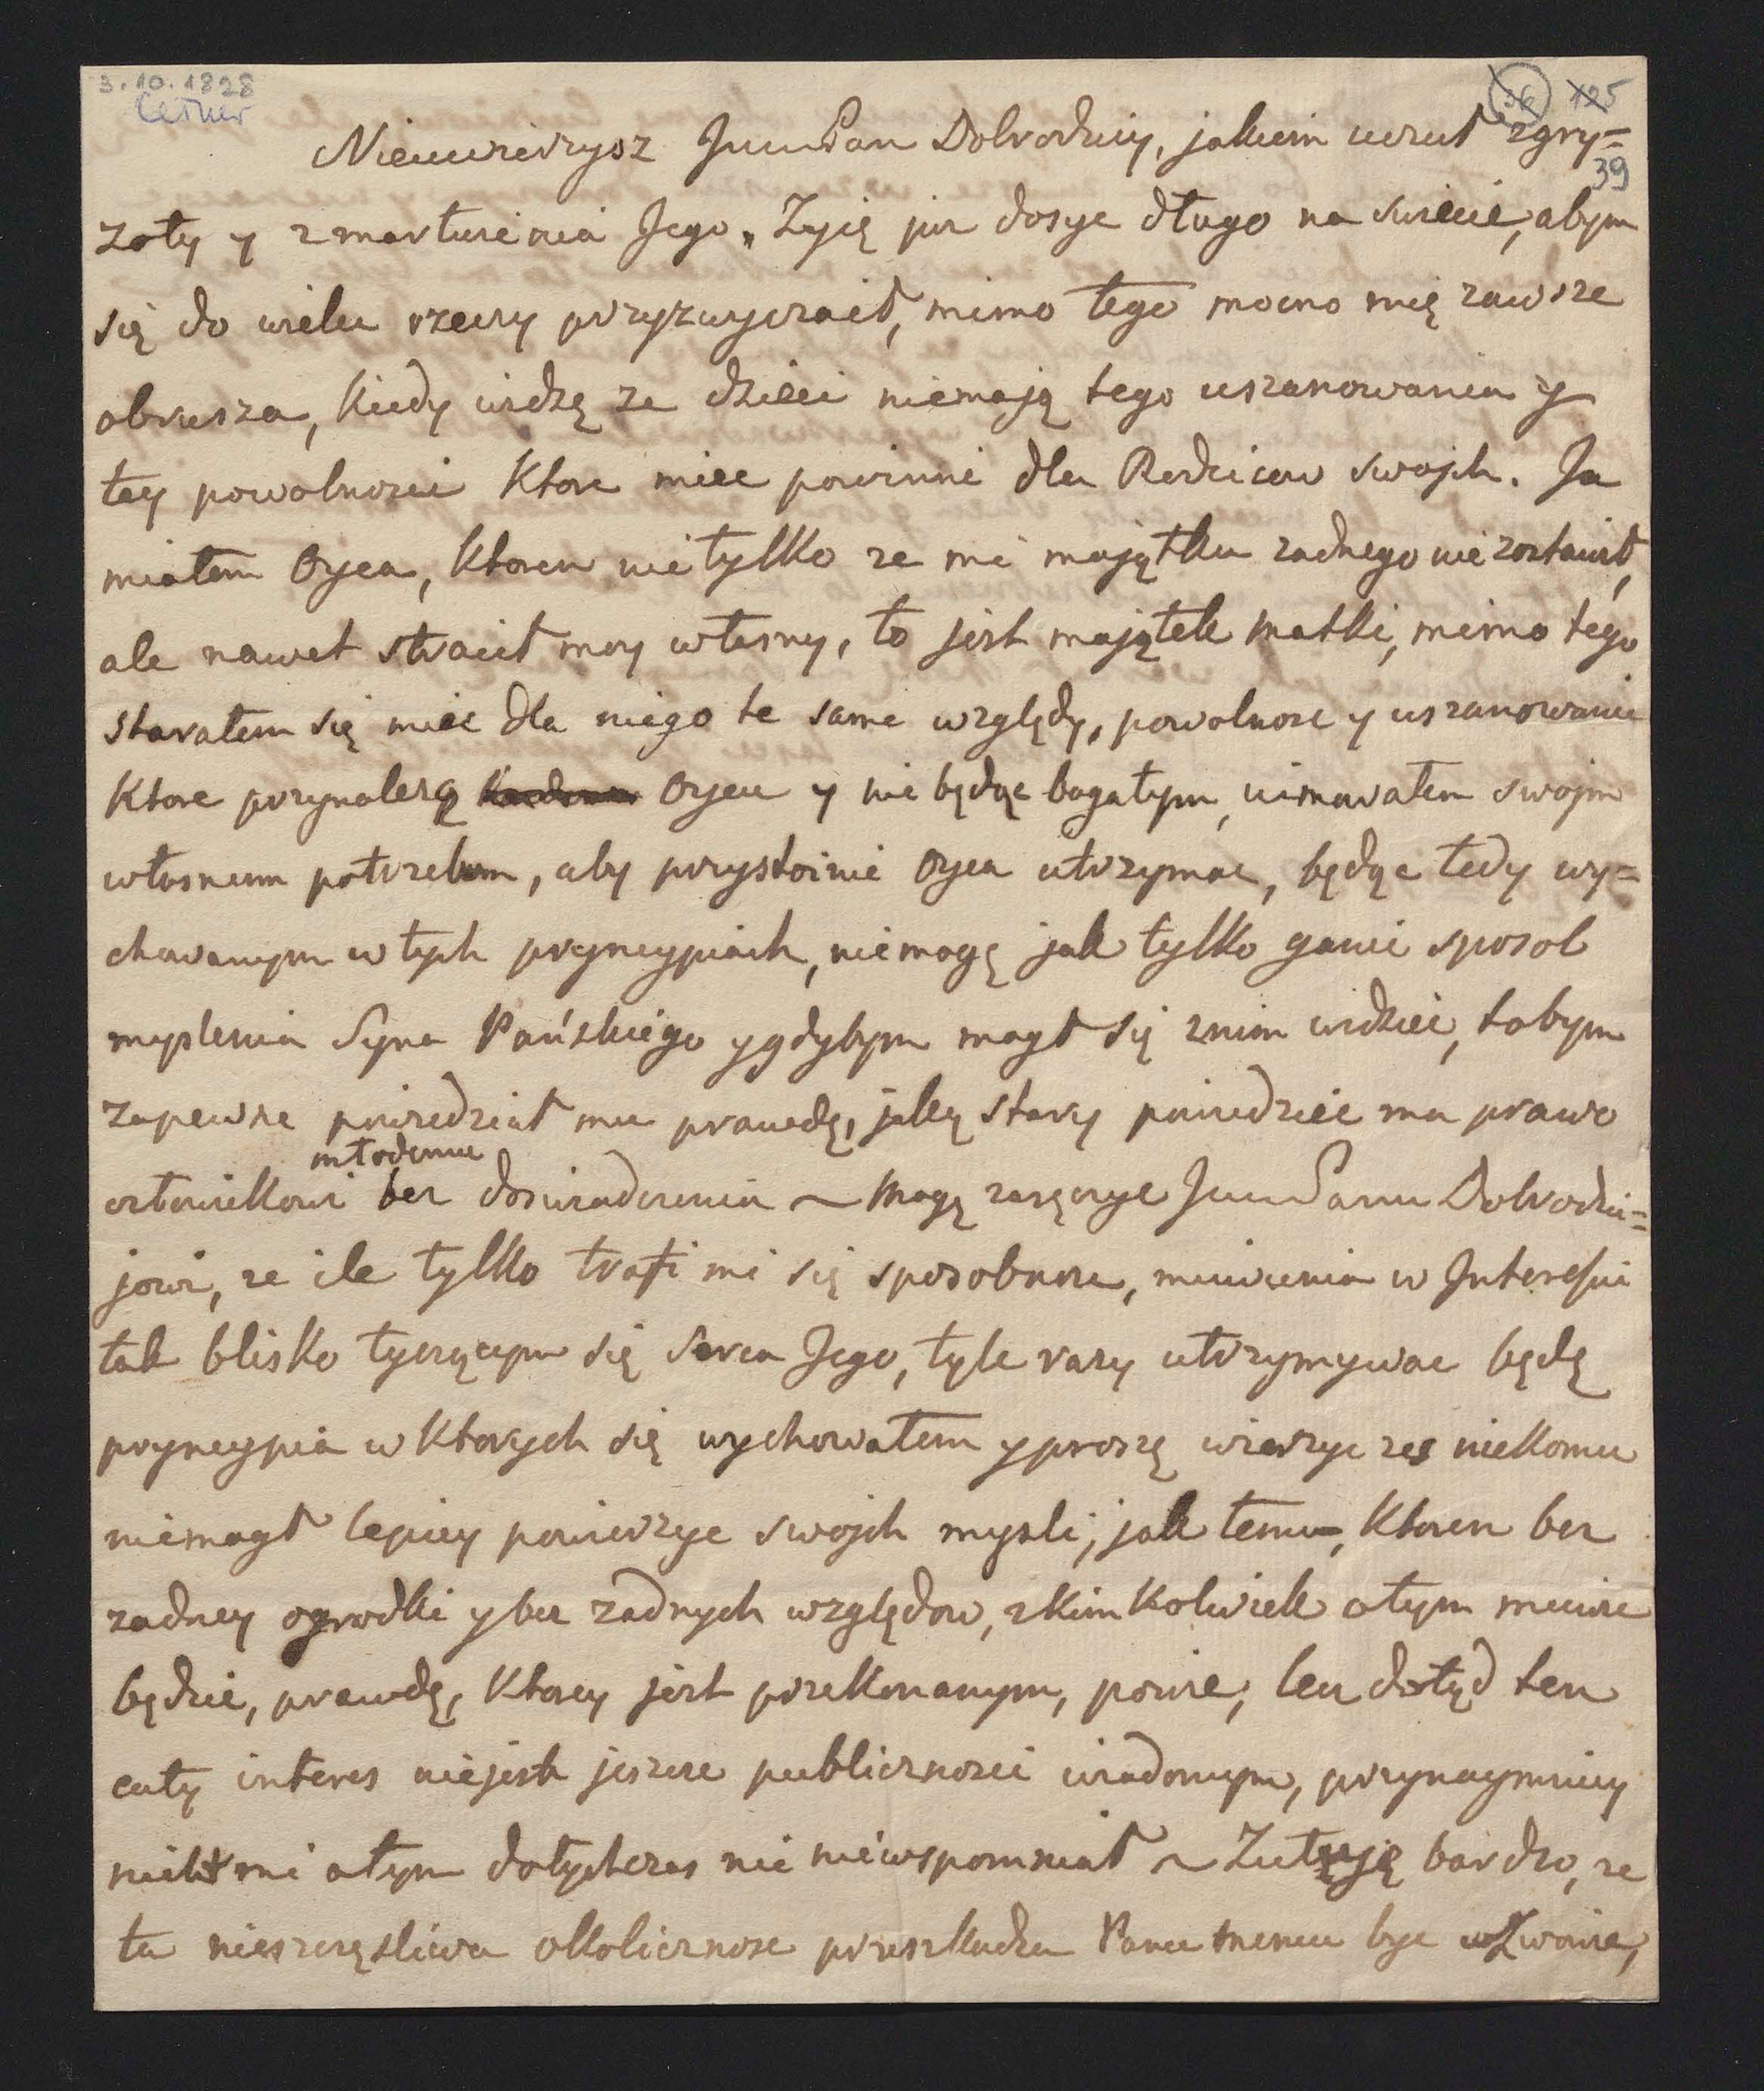 3.10.1828
Cetner
36 125
39
Nieuwierzysz JmPan Dobrodziey, jakiem uczuł zgry=
zoty y zmartwienia Jego, Zyię juz dosyc długo na swiecie, abym
się do wielu rzeczy przyzwyczaił, mimo tego mocno mię zawsze
obrusza, kiedy widzę ze dzieci niemają tego uszanowania y
tey powolnosci ktore miec powinni dla Rodzicow swojch. Ja
miałem Oyca, ktoren nietylko ze mi majątku zadnego nie zostawił,
ale nawet stracił moy własny, to jest majątek matki, mimo tego
starałem się miec dla niego te same względy, powolnosc y uszanowanie
ktore przynalezą Oycu y nie będąc bogatym, uimowałem swojm
własnem potrzebom, aby przystoinie Oyca utrzymac, będąc tedy wy=
chowanym w tych pryncypiach, niemogę jak tylko ganic sposob
myslenia Syna Pańskiego y gdybym mogł się znim widziec, tobym
zapewne powiedział mu prawdę, jaką stary powiedziec ma prawo
młodemu
człowiekowi bez doswiadczenia ~ Mogę zaręczyc JmPanu Dobrodzie=
jowi, ze ile tylko trafi mi się sposobnosc, mowienia w Interessie
tak blisko tyczącym się Serca Jego, tyle razy utrzymywac będę
pryncypia w ktorych się wychowałem y proszę wierzyc zes niekomu
niemogł lepiey powierzyc swojch mysli, jak temu, ktoren bez
zadney ogrodki y bez zadnych względow, zkimkolwiek otym mowic
będzie, prawdę, ktorey jest przekonanym, powie, lecz dotąd ten
cały interes niejest jeszcze publicznosci wiadomym, przynaymniey
nikt mi otym dotychczas nic niewspomniał ~ Zułuję bardzo, ze
ta nieszczęsliwa okolicznosc przeszkadza Panu memu byc w Lwowie,